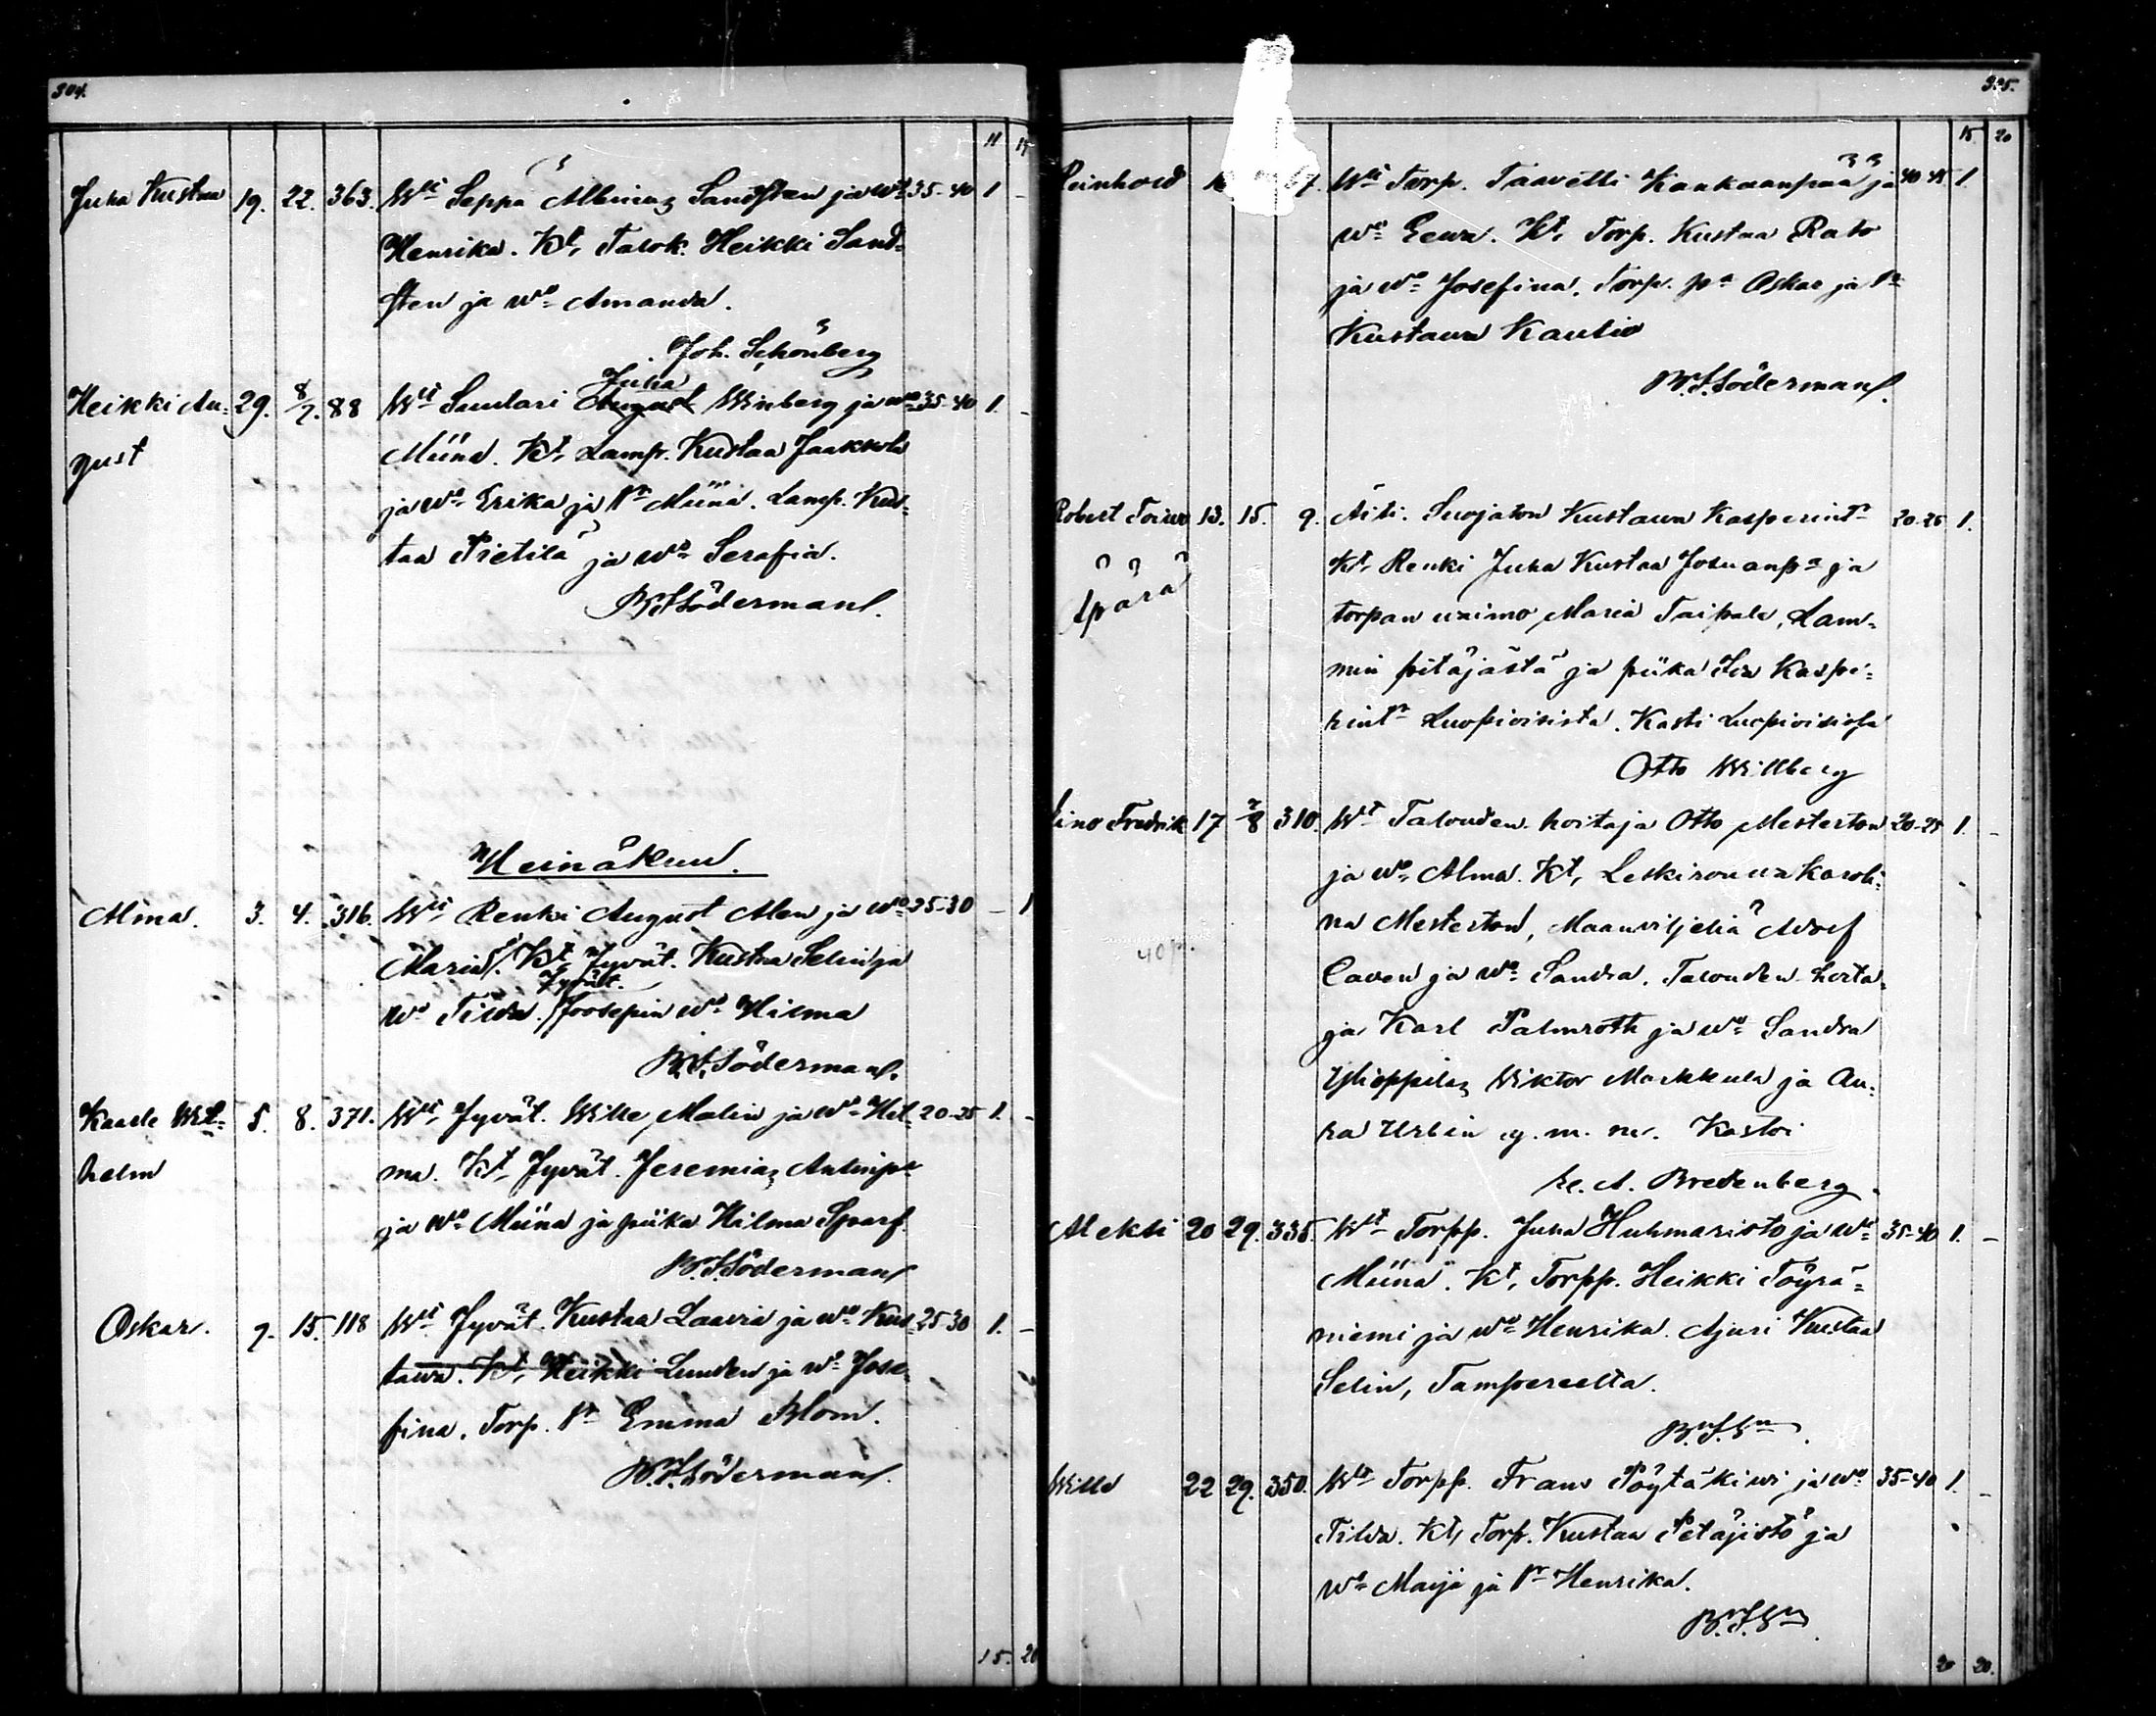 304.
11 19
Juha Kustaa 19. 22. 363. Wti Seppä Albinus Sandsten ja wo 35-40 1 -
Henrika. Kt, Talok. Heikki Sand-
sten ja wo Amanda.
Joh. Schönberg
Juha
Heikki Au- 29. 8/7. 88 Wti Suutari August Winberg ja wo 35-40 1. -
gust Miina. Kt, Lamp. Kustaa Jaakkola
ja wo Erika ja Pr Miina. Lamp. Kus-
taa Pietilä ja wo Serafia.
W.F.Söderman.
Heinäkuu.
Alma. 3. 4. 316. Wti, Renki August Alen ja wo 25-30 - 1
Maria. Kt, Jyvät. Kustaa Selin ja
Jyvät.
wo Tilda. Joosepin wo Hilma
W.F.Söderman.
Kaarle Wil- 5. 8. 371. Wti, Jyvät. Wille Malin ja wo Hil- 20-25 1. -
helm ma. Kt, Jyvät. Jeremias Antinpa
ja wo Miina ja piika Hilma Sparf.
W.F.Söderman
Oskar. 9. 15. 118 Wti Jyvät. Kustaa Laavia ja wo Kus- 25-30 1. -
tawa. Kt, Heikki Lunden ja wo Jose-
fina, Torp. Pr Emma Blom.
W.F.Söderman.
15. 20
305.
15 20
Reinhold 7. Wti Torp. Taavetti Kankaanpää ja 40-45 1.
wo Eewa. Kt, Torp. Kustaa Rato
ja wo Josefina. Torp. pa Oskar ja Pr
Kustawa Kautio
W.F.Söderman.
Robert Toiwo 13. 15. 9. Äiti. Suojaton Kustawa Kasperintr 20-25 1.
Äpärä Kt, Renki Juha Kustaa Josuanpa ja
torpan waimo Maria Taipale, Lam-
min pitäjästä ja piika Ida Kaspe-
rintr Luopioisista. Kasti Luopioisissa
Otto Willberg
Eino Fredrik 17 2/8 310. Wt Talouden hoitaja Otto Mesterton 20-25 1. -
ja wo Alma. Kt, Leskirouwa Karoli-
na Mesterton, Maanviljeliä Adolf
40 p.
Caven ja wo Sandra. Talouden hoita-
ja Karl Palmroth ja wo Sandra
Ylioppilas Wiktor Markkula ja Au-
ra Urbin y. m. m. Kastoi
K. A. Bredenberg.
Aleksi 20 29. 335. Wt Torpp. Juha Huhmaristo ja wo 35-40 1. -
Miina. Kt, Torpp. Heikki Töyrä-
niemi ja wo Henrika. Ajuri Kustaa
Selin, Tampereelta.
W.F.Sn.
Wille 22 29. 350. Wt Torpp. Frans Pöytäkiwi ja wo 35-40 1. -
Tilda. Kt, Torp. Kustaa Petäjistö ja
wo Maija ja Pr Henrika.
W.F.Sn.
20 20.